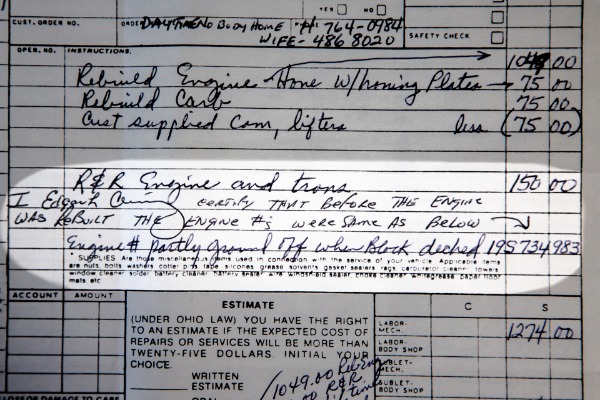 YES NO
CUST. ORDER NO. ORDER DAYTIME NO BODY HOME "#" 764-0984
WIFE- 486 8020
SAFETY CHECK
OPER. NO. INSTRUCTIONS:
1049 00
Rebuild Engine Hone W/honing Plates → 75 00
Rebuild Carb 75 00
Cust supplied Cam, lifters less (75 00)
R&R Engine and trans 150 00
I Edgar CERTIFY THAT BEFORE THE ENGINE
WAS REBUILT THE ENGINE #'s WERE SAME AS BELOW
Engine # partly ground off when Block decked 19S734983
* SUPPLIES Are those miscellaneous items used in connection with the service of your vehicle. Applicable items
are nuts, bolts, washers, cotter pins, tape, silicones, grease, solvents, gasket sealers, rags, carburetor cleaner, towels,
window cleaner, solder, battery cleaner, battery sealer, wire, windshield sealer, choke cleaner, whitegrease, paper floor
mats, etc.
ACCOUNT AMOUNT
ESTIMATE
(UNDER OHIO LAW) YOU HAVE THE RIGHT
TO AN ESTIMATE IF THE EXPECTED COST OF
REPAIRS OR SERVICES WILL BE MORE THAN
TWENTY-FIVE DOLLARS. INITIAL YOUR
CHOICE.
WRITTEN
ESTIMATE
1049.00
R&R
C S
LABOR-
MECH. 1274 00
LABOR-
BODY SHOP
SUBLET-
MECH.
SUBLET-
BODY SHOP